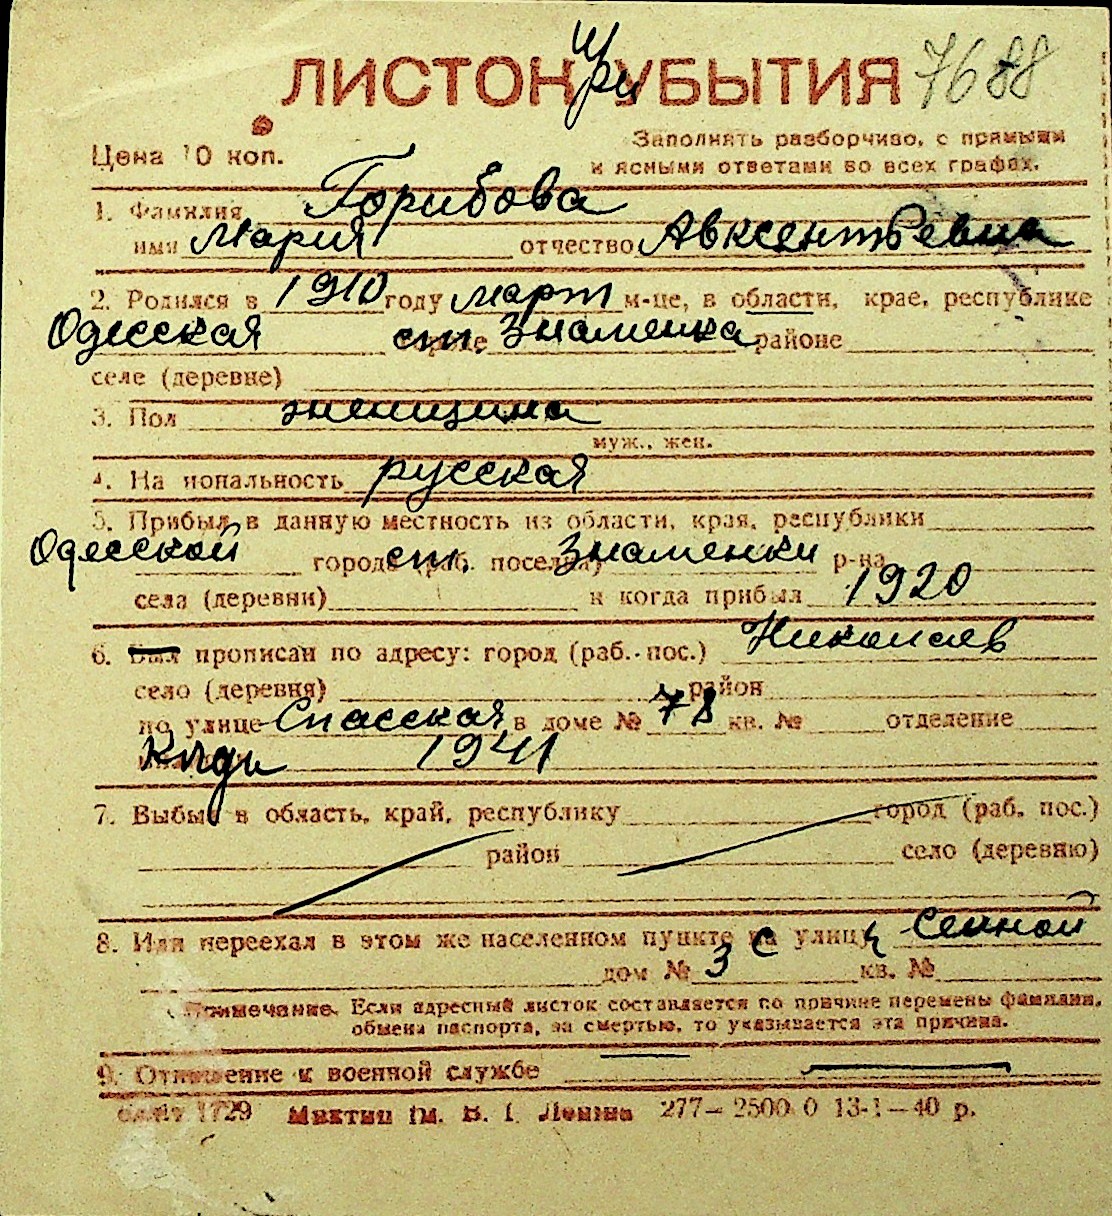 ЛИСТОК при УБЫТИЯ 7688
Цена 10 коп.
Заполнять разборчиво, с прямыми
и ясными ответами во всех графах.
1. Фамилия Горибова
имя Мария отчество Авксентьевна
2. Родился в 1910 году март м-це, в области, крае, республике
Одесская ст. Знаменка районе
селе (деревне)
3. Пол женщина
муж., жен.
4. Национальность русская
5. Прибыл в данную местность из области, края, республики
Одесской города ст. (раб. поселка) Знаменки р-на
села (деревни) и когда прибыл 1920
6. Был прописан по адресу: город (раб. пос.) Николаев
село (деревня) район
по улице Спасская в доме № 78 кв. № отделение
1941
7. Выбыл в область, край, республику город (раб. пос.)
район село (деревню)
8. Или переехал в этом же населенном пункте с улицы Сенной
дом № 3 кв. №
Примечание. Если адресный листок составляется по причине перемены фамилии,
обмена паспорта, за смертью, то указывается эта причина.
9. Отношение к военной службе
1729 им. В. І. Леніна 277—2500 0 13-1—40 р.